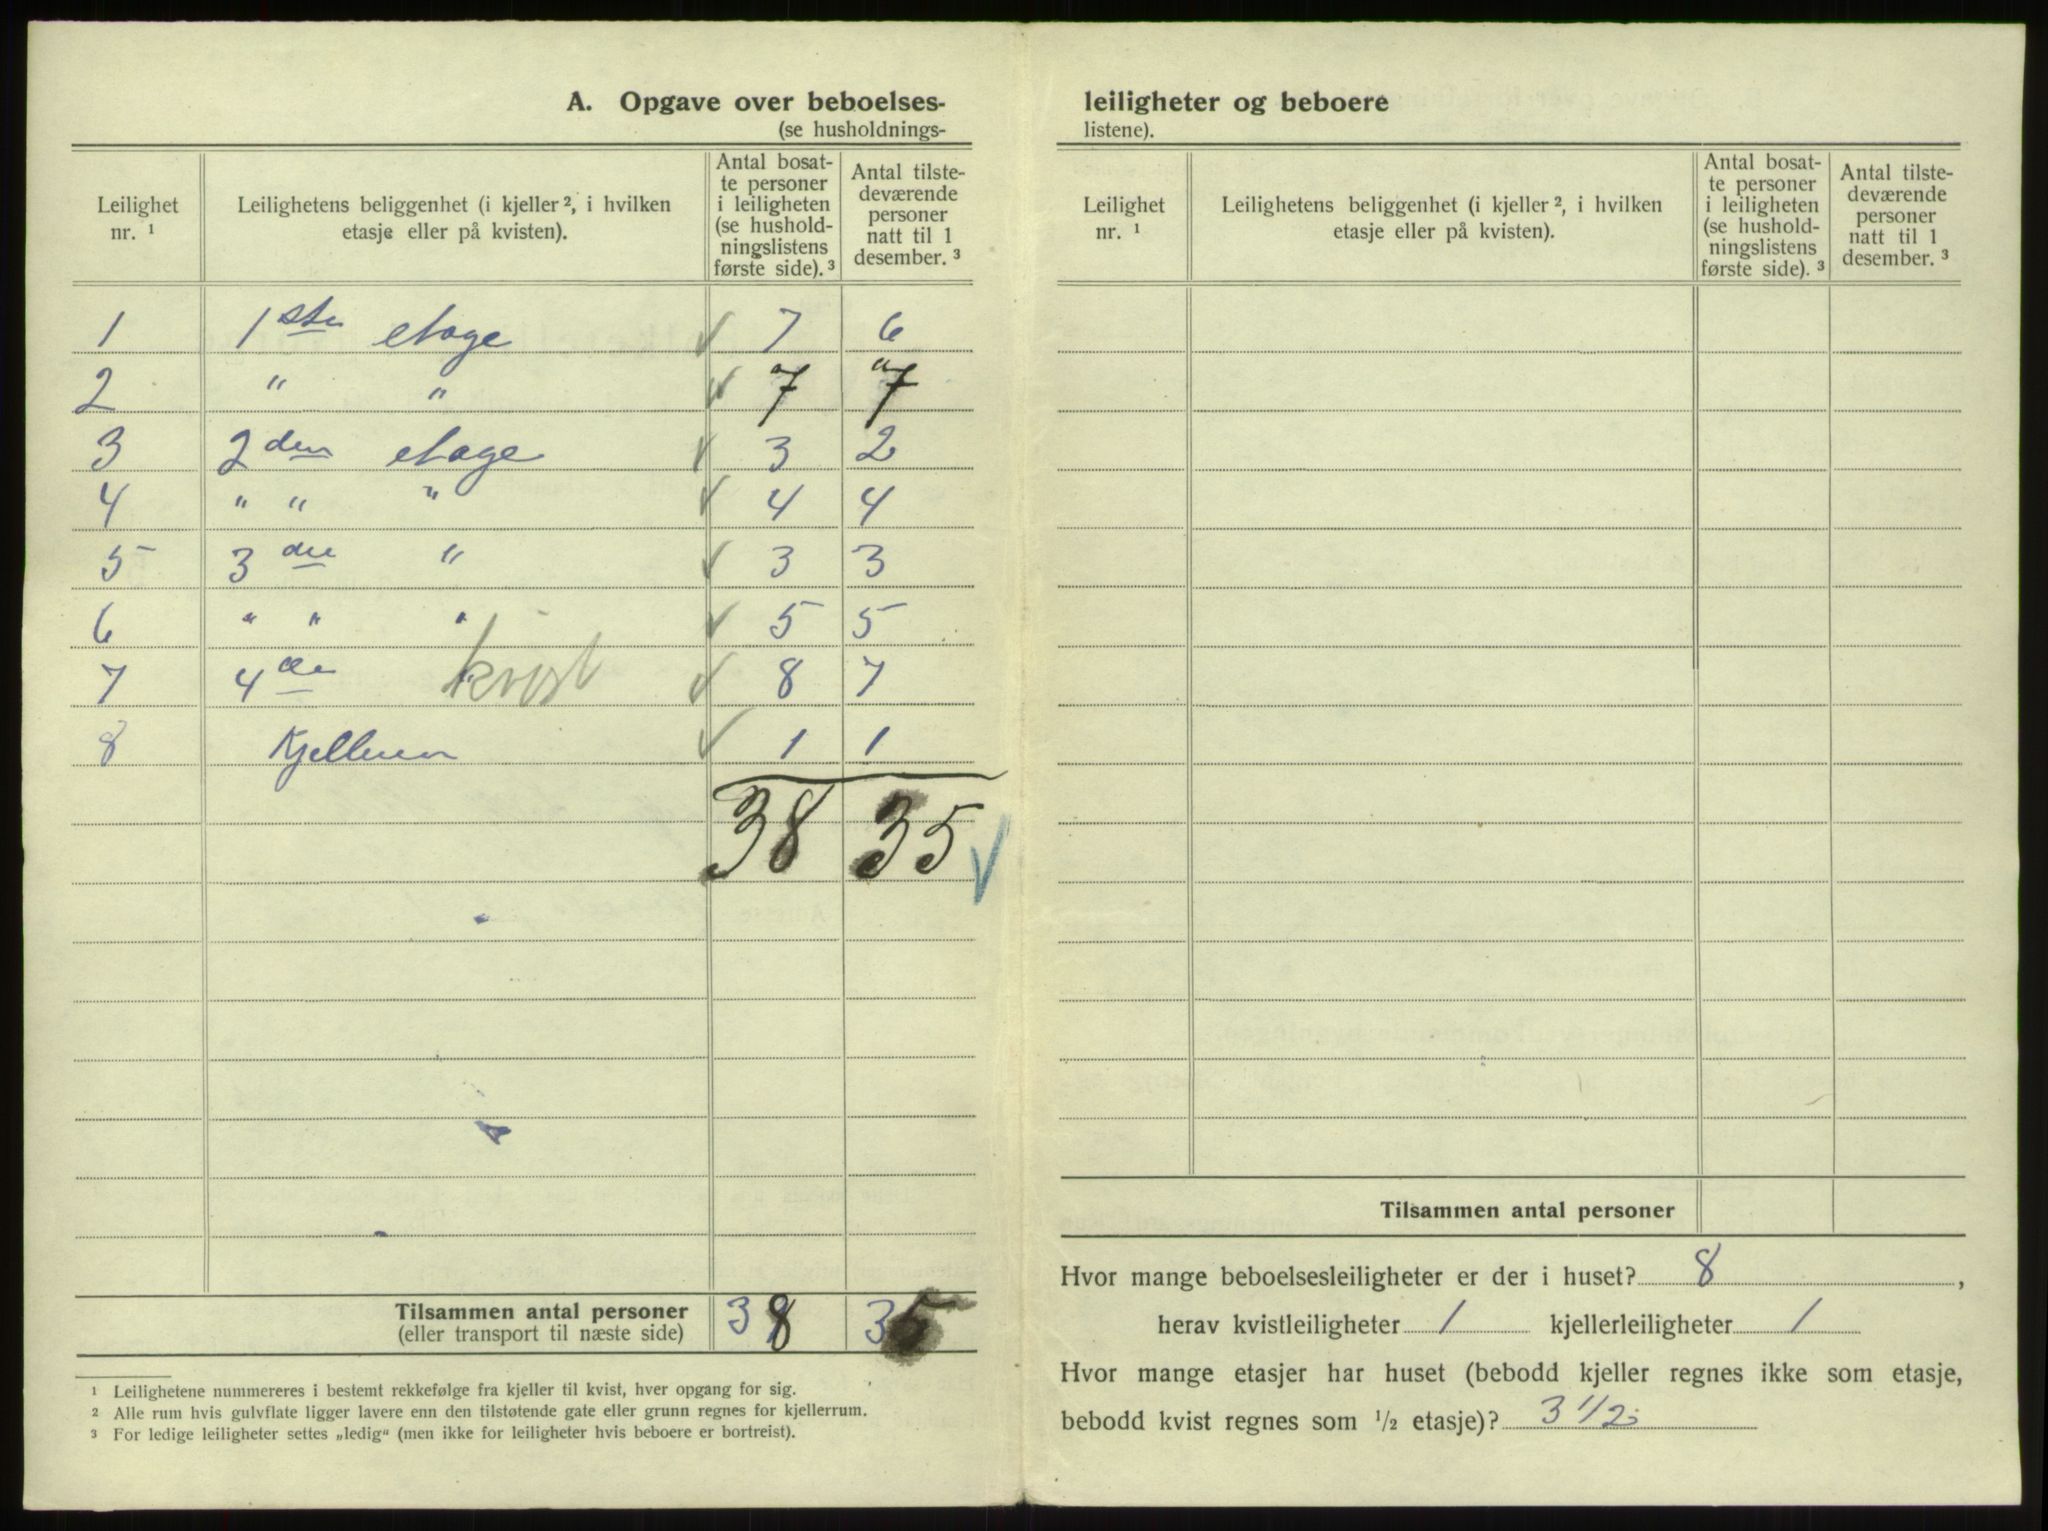 A. Opgave over beboelses-
(se husholdnings-
Leilighet nr. ¹
Leilighetens beliggenhet (i kjeller ², i hvilken
etasje eller på kvisten).
Antal bosat-
te personer
i leiligheten
(se hushold-
ningslistens
første side). ³
Antal tilste-
deværende
personer
natt til 1
desember. ³
1 1ste etage 7 6
2 " " 7 7
3 2den etage 3 2
4 " " " 4 4
5 3die " 3 3
6 " " " 5 5
7 4de " kvist 8 7
8 Kjelleren 1 1
38 35
Tilsammen antal personer 38 35
(eller transport til næste side)
¹ Leilighetene nummereres i bestemt rekkefølge fra kjeller til kvist, hver opgang for sig.
² Alle rum hvis gulvflate ligger lavere enn den tilstøtende gate eller grunn regnes for kjellerrum.
³ For ledige leiligheter settes „ledig“ (men ikke for leiligheter hvis beboere er bortreist).
leiligheter og beboere
listene).
Leilighet nr. ¹
Leilighetens beliggenhet (i kjeller ², i hvilken
etasje eller på kvisten).
Antal bosat-
te personer
i leiligheten
(se hushold-
ningslistens
første side). ³
Antal tilste-
deværende
personer
natt til 1
desember. ³
Tilsammen antal personer
Hvor mange beboelsesleiligheter er der i huset? 8 ,
herav kvistleiligheter 1 kjellerleiligheter 1
Hvor mange etasjer har huset (bebodd kjeller regnes ikke som etasje,
bebodd kvist regnes som ½ etasje)? 3 1/2